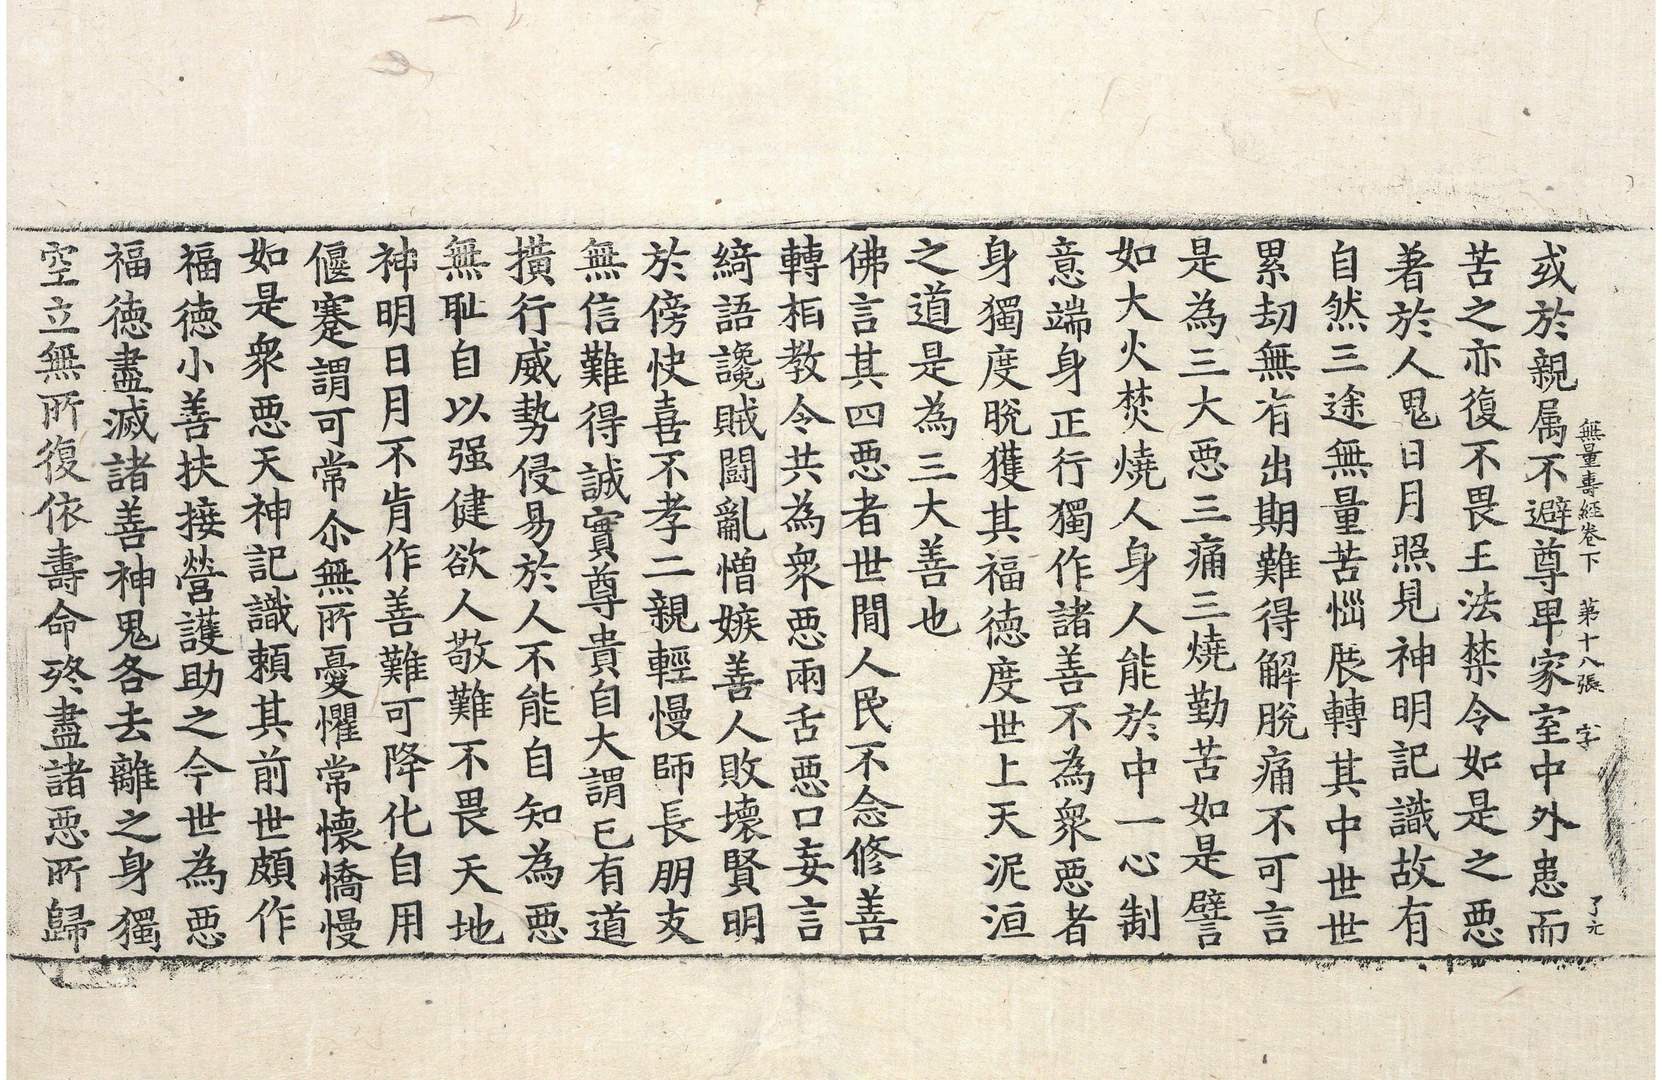 無量壽經卷下 第十八張 字 了元
或於親属不避尊卑家室中外患而
苦之亦復不畏王法禁令如是之惡
著於人鬼日月照見神明記識故有
自然三途無量苦惱展轉其中世世
累劫無有出期難得解脫痛不可言
是為三大惡三痛三燒勤苦如是譬
如大火焚燒人身人能於中一心制
意端身正行獨作諸善不為衆惡者
身獨度脫獲其福德度世上天泥洹
之道是為三大善也
佛言其四惡者世間人民不念修善
轉相教令共為衆惡兩舌惡口妄言
綺語讒賊鬪亂憎嫉善人敗壞賢明
於傍快喜不孝二親輕慢師長朋友
無信難得誠實尊貴自大謂己有道
撗行威勢侵易於人不能自知為惡
無恥自以强健欲人敬難不畏天地
神明日月不肯作善難可降化自用
偃蹇謂可常尒無所憂懼常懷憍慢
如是衆惡天神記識頼其前世頗作
福德小善扶接營護助之今世為惡
福德盡滅諸善神鬼各去離之身獨
空立無所復依壽命終盡諸惡所歸